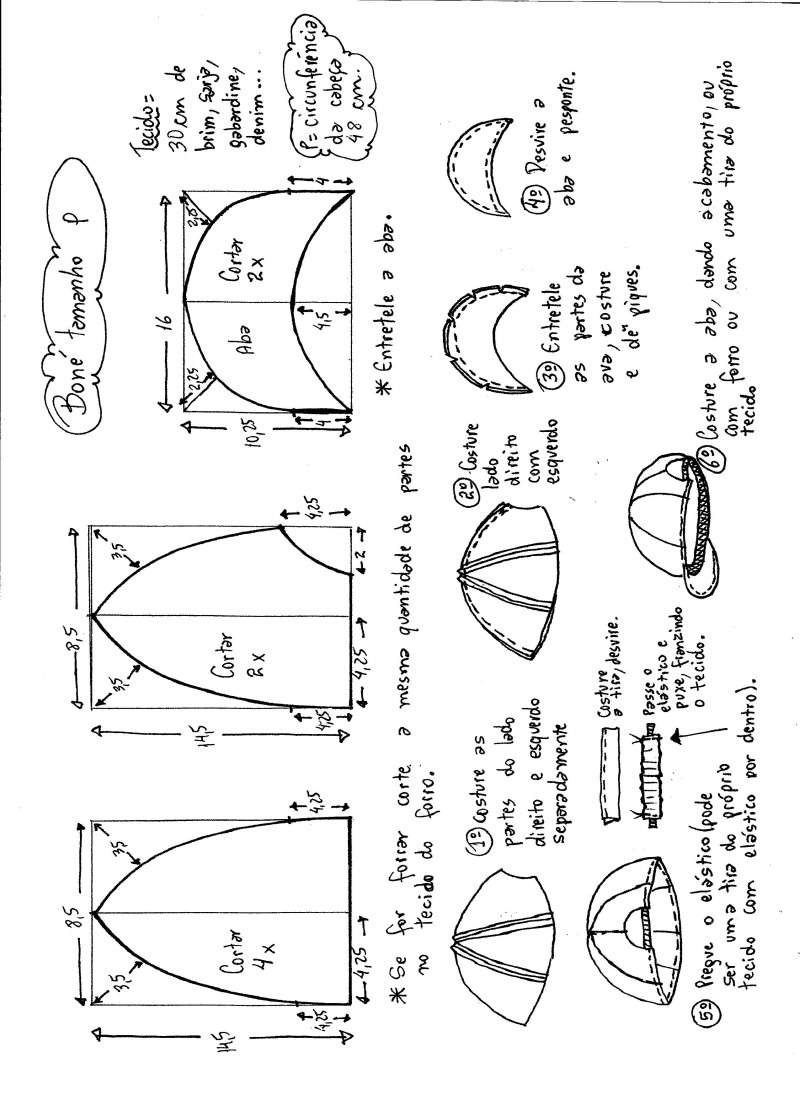 Boné tamanho P
Tecido=
30 cm de
brim, sarja,
gabardine,
denim...
P= circunferência
da cabeça
48 cm.
8,5
3,5
3,5
14,5
Cortar
4x
4,25
4,25
4,25
8,5
3,5
3,5
14,5
Cortar
2x
4,25
4,25
4,25
2
16
2,25
2,25
10,25
Aba
Cortar
2x
4,5
4
4
* Entretele a aba.
* Se for forrar corte a mesma quantidade de partes
no tecido do forro.
1º Costure as
partes do lado
direito e esquerdo
separadamente
2º Costure
lado
direito
com
esquerdo
3º Entretele
as partes da
ava, costure
e dê piques.
4º Desvire a
aba e pesponte.
5º Pregue o elástico (pode
ser uma tira do próprio
tecido com elástico por dentro).
Costure
a tira, desvire.
Passe o
elástico e
puxe, franzindo
o tecido.
6º Costure a aba, dando acabamento, ou
com forro ou com uma tira do próprio
tecido